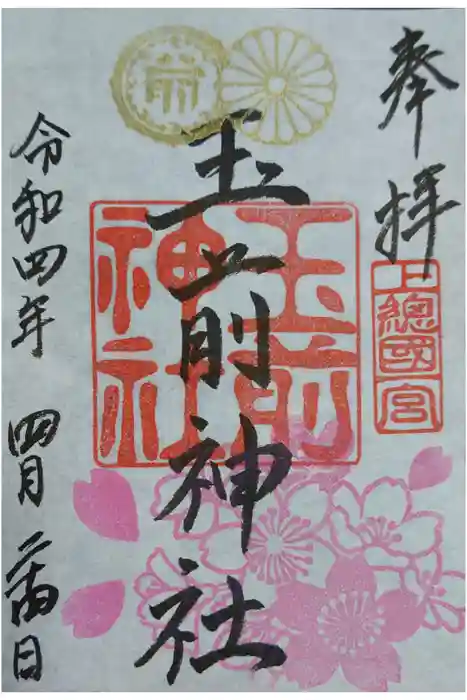 奉拝
上總國一宮
玉前神社
玉前
神社
令和四年 四月 二十四日